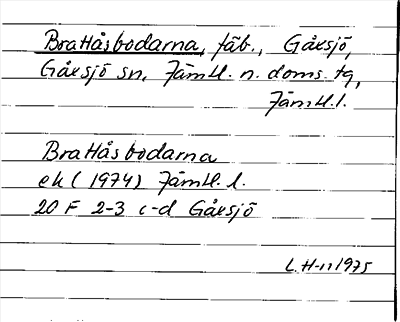 Brattåsbodarna, fäb., Gåxsjö,
Gåxsjö sn, Jämtl. n. doms. tg,
Jämtl. l.
Brattåsbodarna
ek (1974) Jämtl. l.
20 F 2-3 c-d Gåxsjö
L. H-n 1975